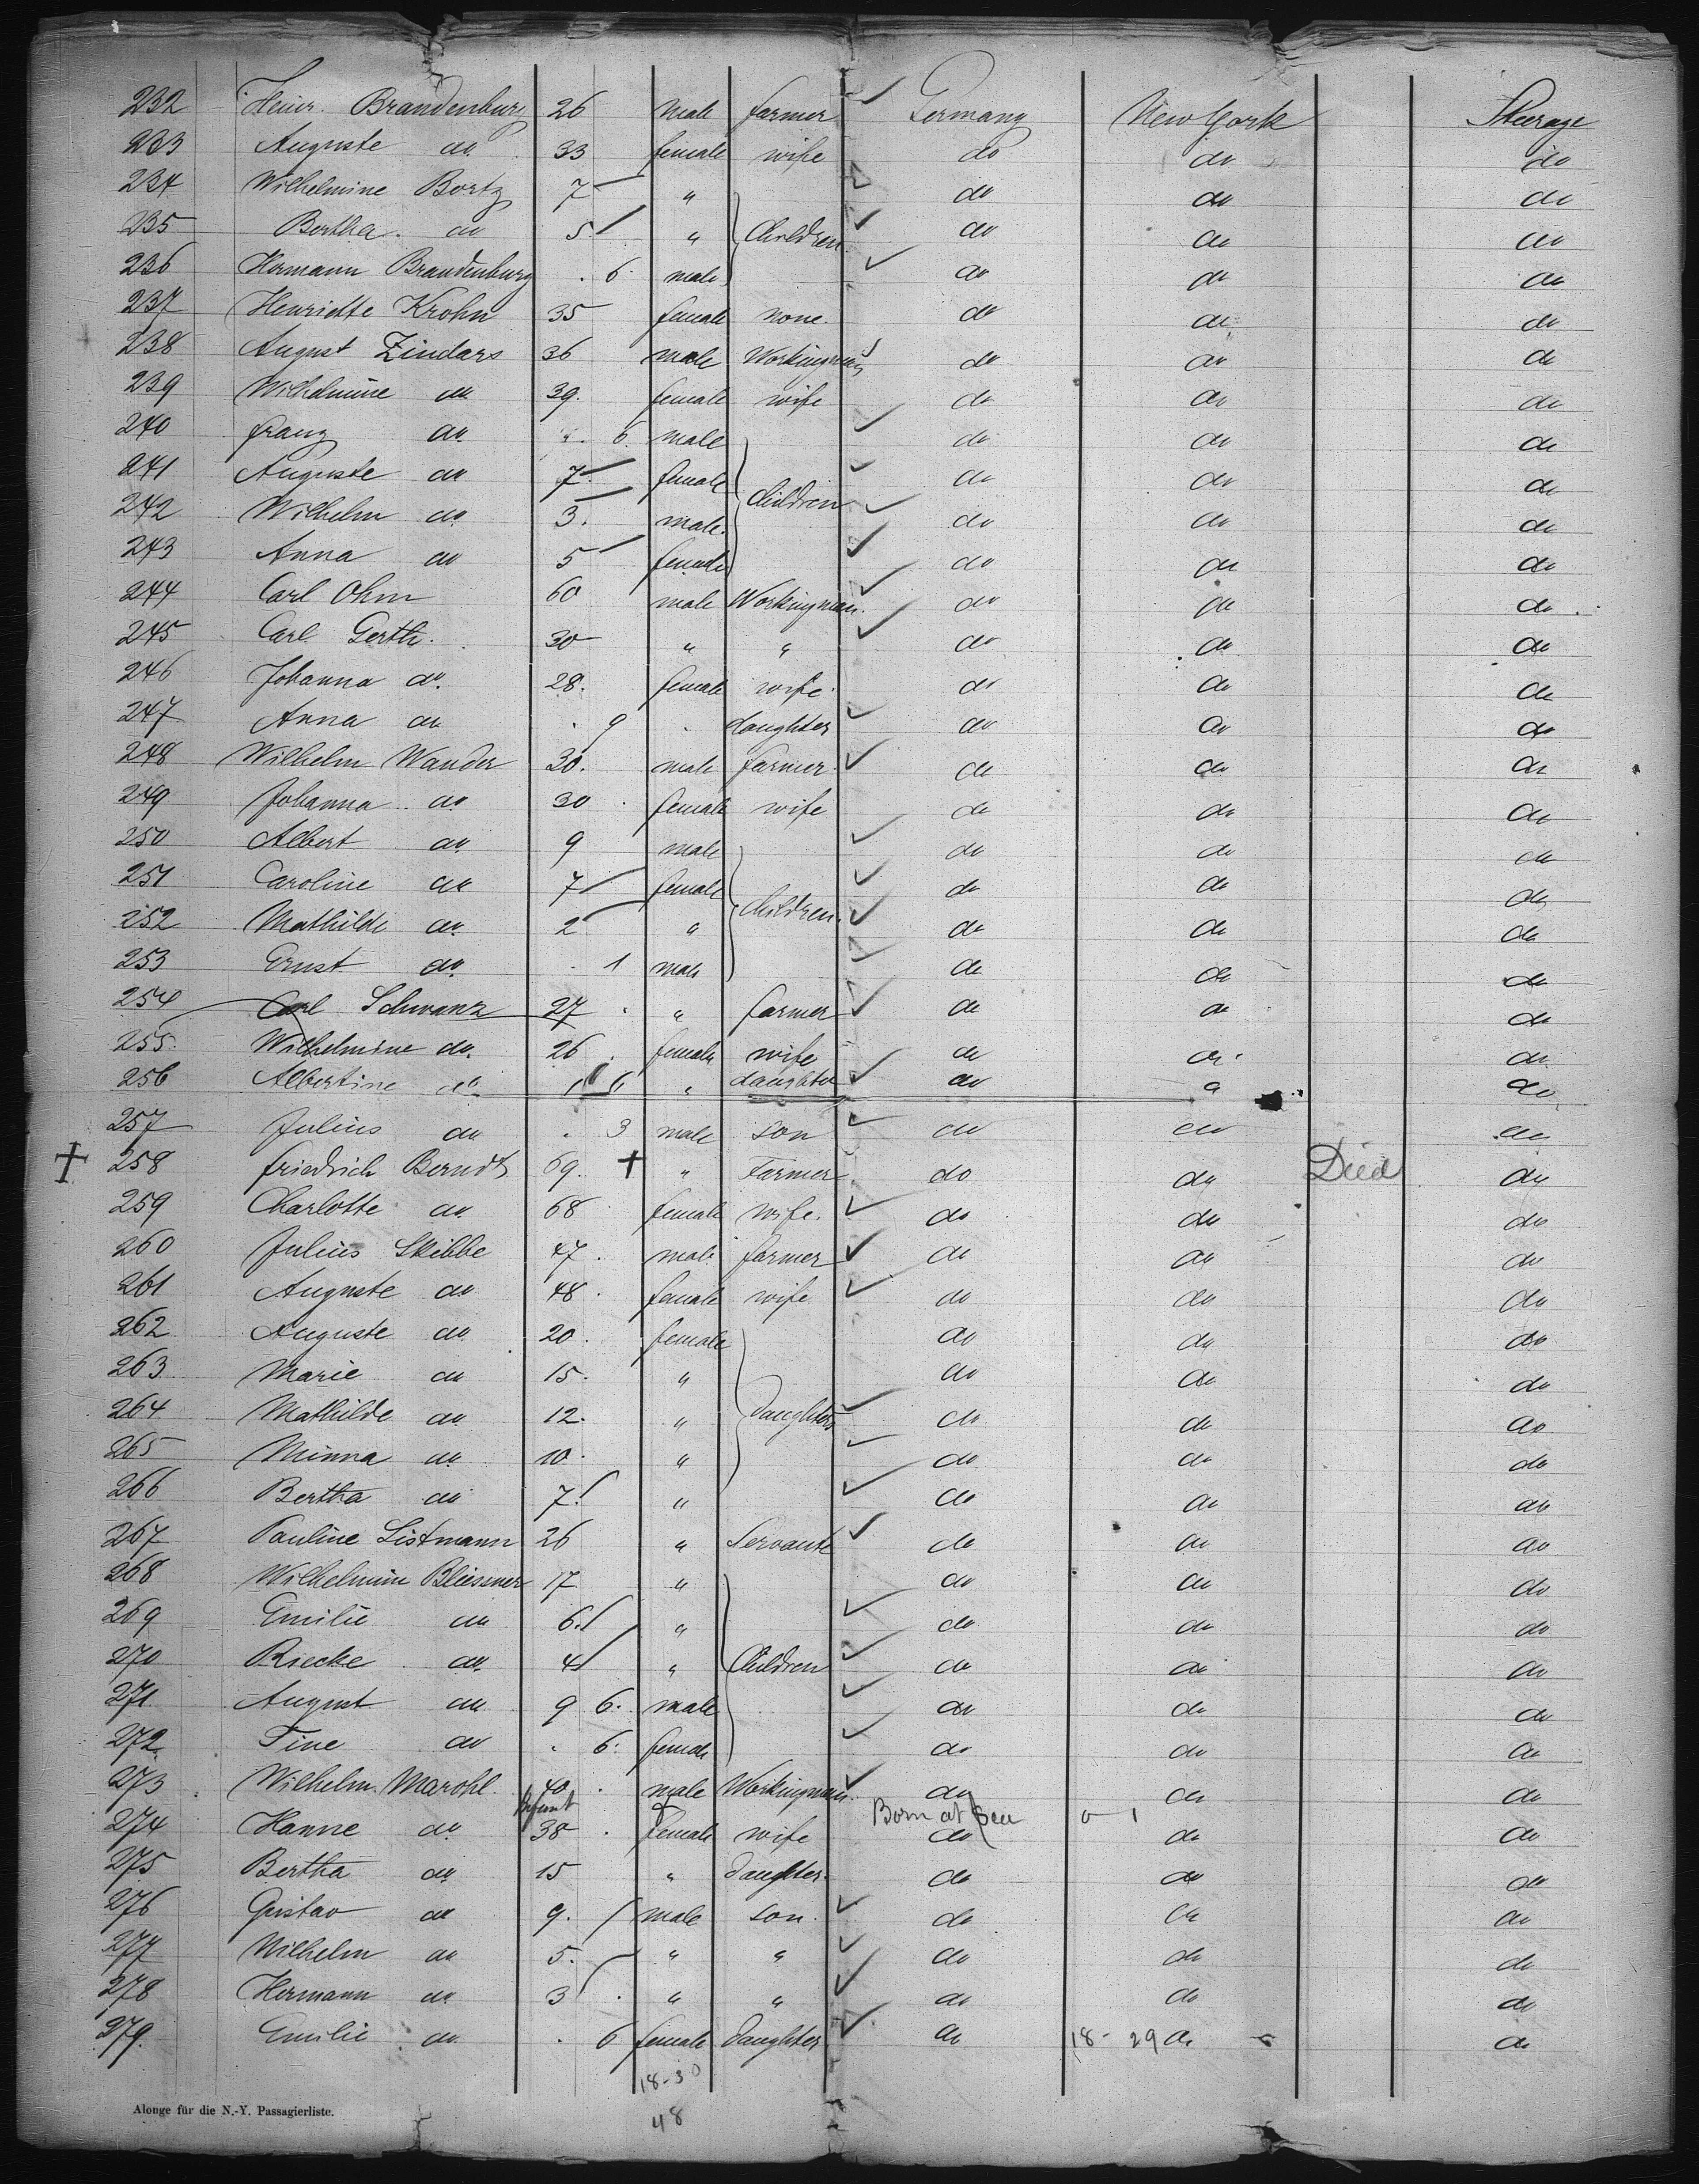 232 Heinr. Brandenburg 26 male farmer Germany New York Steerage
233 Auguste do 33 female wife do do do
234 Wilhelmine Bortz 7 " do do do
235 Bertha do 5 " Children do do do
236 Hermann Brandenburg . 6 male do do do
237 Henriette Krohn 35 female none. do do do
238 August Zindars 36 male Workingman do do do
239 Wilhelmine do 39. female wife do do do
240 Franz do . 6. male do do do
241 Auguste do 7. female do do do
242 Wilhelm do 3. male. Children do do do
243 Anna do 5 female do do do
244 Carl Ohm 60 male Workingman. do do do
245 Carl Gerth. 30 " " do do do
246 Johanna do. 28. female wife do do do
247 Anna do . 9 . daughter do do do
248 Wilhelm Wander 30. male farmer. do do do
249 Johanna do 30 . female wife do do do
250 Albert do 9 male do do do
251 Caroline do 7 female do do do
252 Mathilde do. 2 " Children. do do do
253 Ernst do. . 1 male do do do
254 Carl Schwanz 27 . " farmer do do do
255 Wilhelmine do. 26 . female wife do do do
256 Albertine do " daughter do do
257 Julius do . 3 male son do do do
+ 258 Friedrich Berndt 69. + " Farmer do do Died do
259 Charlotte do 68 . female wife. do do do
260 Julius Skibbe 47 . male farmer do do do
261 Auguste do 48 . female wife do do do
262 Auguste do 20 . female do do do
263 Marie do 15. " do do do
264 Mathilde do 12. " daughters do do do
265 Minna do 10. " do do do
266 Bertha do 7. " do do do
267 Pauline Listmann 26 " Servante do do do
268 Wilhelmine Bliessner 17 " do do do
269 Emilie do 6. " do do do
270 Riecke do 4 " Children do do do
271 August do 9 6. male do do do
272 Tine do . 6. female do do do
273 Wilhelm Marohl. 40 . male Workingman. do do do
Infant Born at Sea
274 Hanne do 38 . female wife do do do
275 Bertha do 15 " daughter. do do do
276 Gustav do 9. male son. do do do
277 Wilhelm do 5. " " do do do
278 Hermann do 3 . " " do do do
279. Emilie do . 6 female daughter do 18 - 29 do do
18-30
48
Alonge für die N.-Y. Passagierliste.